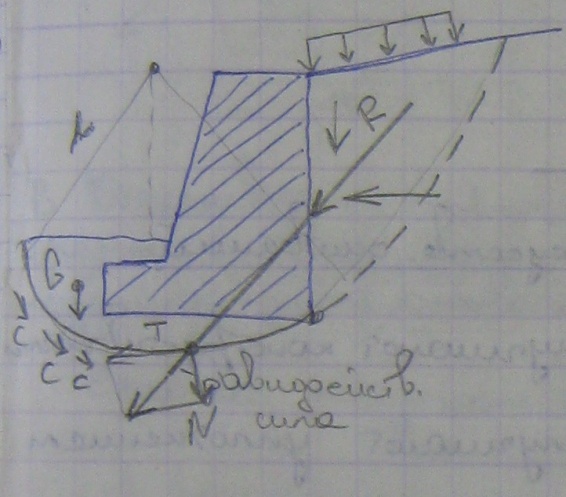 R
r
G
c
c
c
T
N
равнодейств.
сила